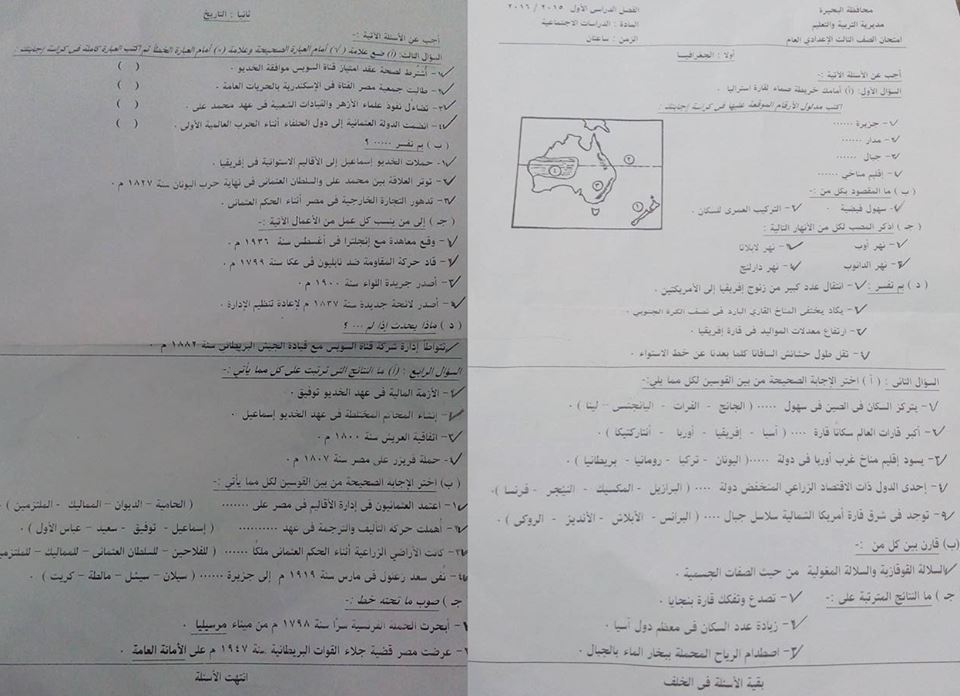 محافظة البحيرة
مديرية التربية والتعليم
امتحان الصف الثالث الإعدادي العام
الفصل الدراسى الأول ٢٠١٥ / ٢٠١٦
المادة : الدراسات الاجتماعية
الزمن : ساعتان
أولا : الجغرافيا
أجب عن الأسئلة الآتية :-
السؤال الأول: (أ) أمامك خريطة صماء لقارة استراليا .
اكتب مدلول الأرقام الموقعة عليها فى كراسة إجابتك :
١- جزيرة ......
٢- مدار ......
٣- جبال ......
٤- إقليم مناخى ......
(ب) ما المقصود بكل من :-
١- سهول فيضية . ٢- التركيب العمرى للسكان .
( جـ ) اذكر المصب لكل من الأنهار التالية :
١- نهر أوب ٢- نهر لابلاتا
٣- نهر الدانوب ٤- نهر دارلنج
( د ) بم تفسر : ١- انتقال عدد كبير من زنوج إفريقيا إلى الأمريكتين .
٢- يكاد يختفى المناخ القارى البارد فى نصف الكرة الجنوبى .
٣- ارتفاع معدلات المواليد فى قارة إفريقيا .
٤- تقل طول حشائش السافانا كلما بعدنا عن خط الاستواء .
السؤال الثانى : ( أ ) اختر الإجابة الصحيحة من بين القوسين لكل مما يلى:-
١- يتركز السكان فى الصين فى سهول ..... ( الجانج - الفرات - اليانجتسى - لينا ) .
٢- أكبر قارات العالم سكانا قارة .... ( أسيا - إفريقيا - أوربا - أنتاركتيكا ) .
٣- يسود إقليم مناخ غرب أوربا فى دولة .....( اليونان - تركيا - رومانيا - بريطانيا ) .
٤- إحدى الدول ذات الاقتصاد الزراعي المنخفض دولة .... ( البرازيل - المكسيك - النيجر - فرنسا ) .
٥- توجد فى شرق قارة أمريكا الشمالية سلاسل جبال .... ( البرانس - الأبلاش - الأنديز - الروكى ) .
(ب) قارن بين كل من :-
السلالة القوقازية والسلالة المغولية من حيث الصفات الجسمية .
جـ ) ما النتائج المترتبة على :- ١- تصدع وتفكك قارة بنجايا .
٢- زيادة عدد السكان فى معظم دول أسيا .
٣- اصطدام الرياح المحملة ببخار الماء بالجبال .
بقية الأسئلة فى الخلف
ثانيا : التاريخ
أجب عن الأسئلة الآتية :-
السؤال الثالث: (أ) ضع علامة (√) أمام العبارة الصحيحة وعلامة (×) أمام العبارة الخطأ ثم اكتب العبارة كاملة فى كراسة إجابتك :
١- اشترط لصحة عقد امتياز قناة السويس موافقة الخديو . ( )
٢- طالبت جمعية مصر الفتاة فى الإسكندرية بالحريات العامة . ( )
٣- تضاءل نفوذ علماء الأزهر والقيادات الشعبية فى عهد محمد على . ( )
٤- انضمت الدولة العثمانية إلى دول الحلفاء أثناء الحرب العالمية الأولى . ( )
( ب ) بم تفسر ..... ؟
١- حملات الخديو إسماعيل إلى الأقاليم الاستوائية فى إفريقيا .
٢- توتر العلاقة بين محمد على والسلطان العثمانى فى نهاية حرب اليونان سنة ١٨٢٧ م .
٣- تدهور التجارة الخارجية فى مصر أثناء الحكم العثمانى .
( جـ ) إلى من ينسب كل عمل من الأعمال الآتية :-
١- وقع معاهدة مع إنجلترا فى أغسطس سنة ١٩٣٦ م .
٢- قاد حركة المقاومة ضد نابليون فى عكا سنة ١٧٩٩ م .
٣- أصدر جريدة اللواء سنة ١٩٠٠ م .
٤- أصدر لائحة جديدة سنة ١٨٣٧ م لإعادة تنظيم الإدارة .
( د ) ماذا يحدث إذا لم .... ؟
تتواطأ إدارة شركة قناة السويس مع قيادة الجيش البريطانى سنة ١٨٨٢ م .
السؤال الرابع : (أ) ما النتائج التى ترتبت على كل مما يأتي :-
١- الأزمة المالية فى عهد الخديو توفيق .
٢- إنشاء المحاكم المختلطة فى عهد الخديو إسماعيل .
٣- اتفاقية العريش سنة ١٨٠٠ م .
٤- حملة فريزر على مصر سنة ١٨٠٧ م .
(ب) اختر الإجابة الصحيحة من بين القوسين لكل مما يأتى :-
١- اعتمد العثمانيون فى إدارة الأقاليم فى مصر على ........ ( الحامية – الديوان – المماليك - الملتزمين )
٢- أهملت حركة التأليف والترجمة فى عهد ......... ( إسماعيل – توفيق - سعيد – عباس الأول )
٣- كانت الأراضي الزراعية أثناء الحكم العثمانى ملكا ...... ( للفلاحين – للسلطان العثمانى – للمماليك –
٤- نُفى سعد زغلول فى مارس سنة ١٩١٩ م إلى جزيرة ...... ( سيلان – سيشل – مالطة – كريت ) .
جـ ) صوب ما تحته خط :-
١- أبحرت الحملة الفرنسية سرًا سنة ١٧٩٨ م من ميناء مرسيليا .
٢- عرضت مصر قضية جلاء القوات البريطانية سنة ١٩٤٧ م على الأمانة العامة .
انتهت الأسئلة